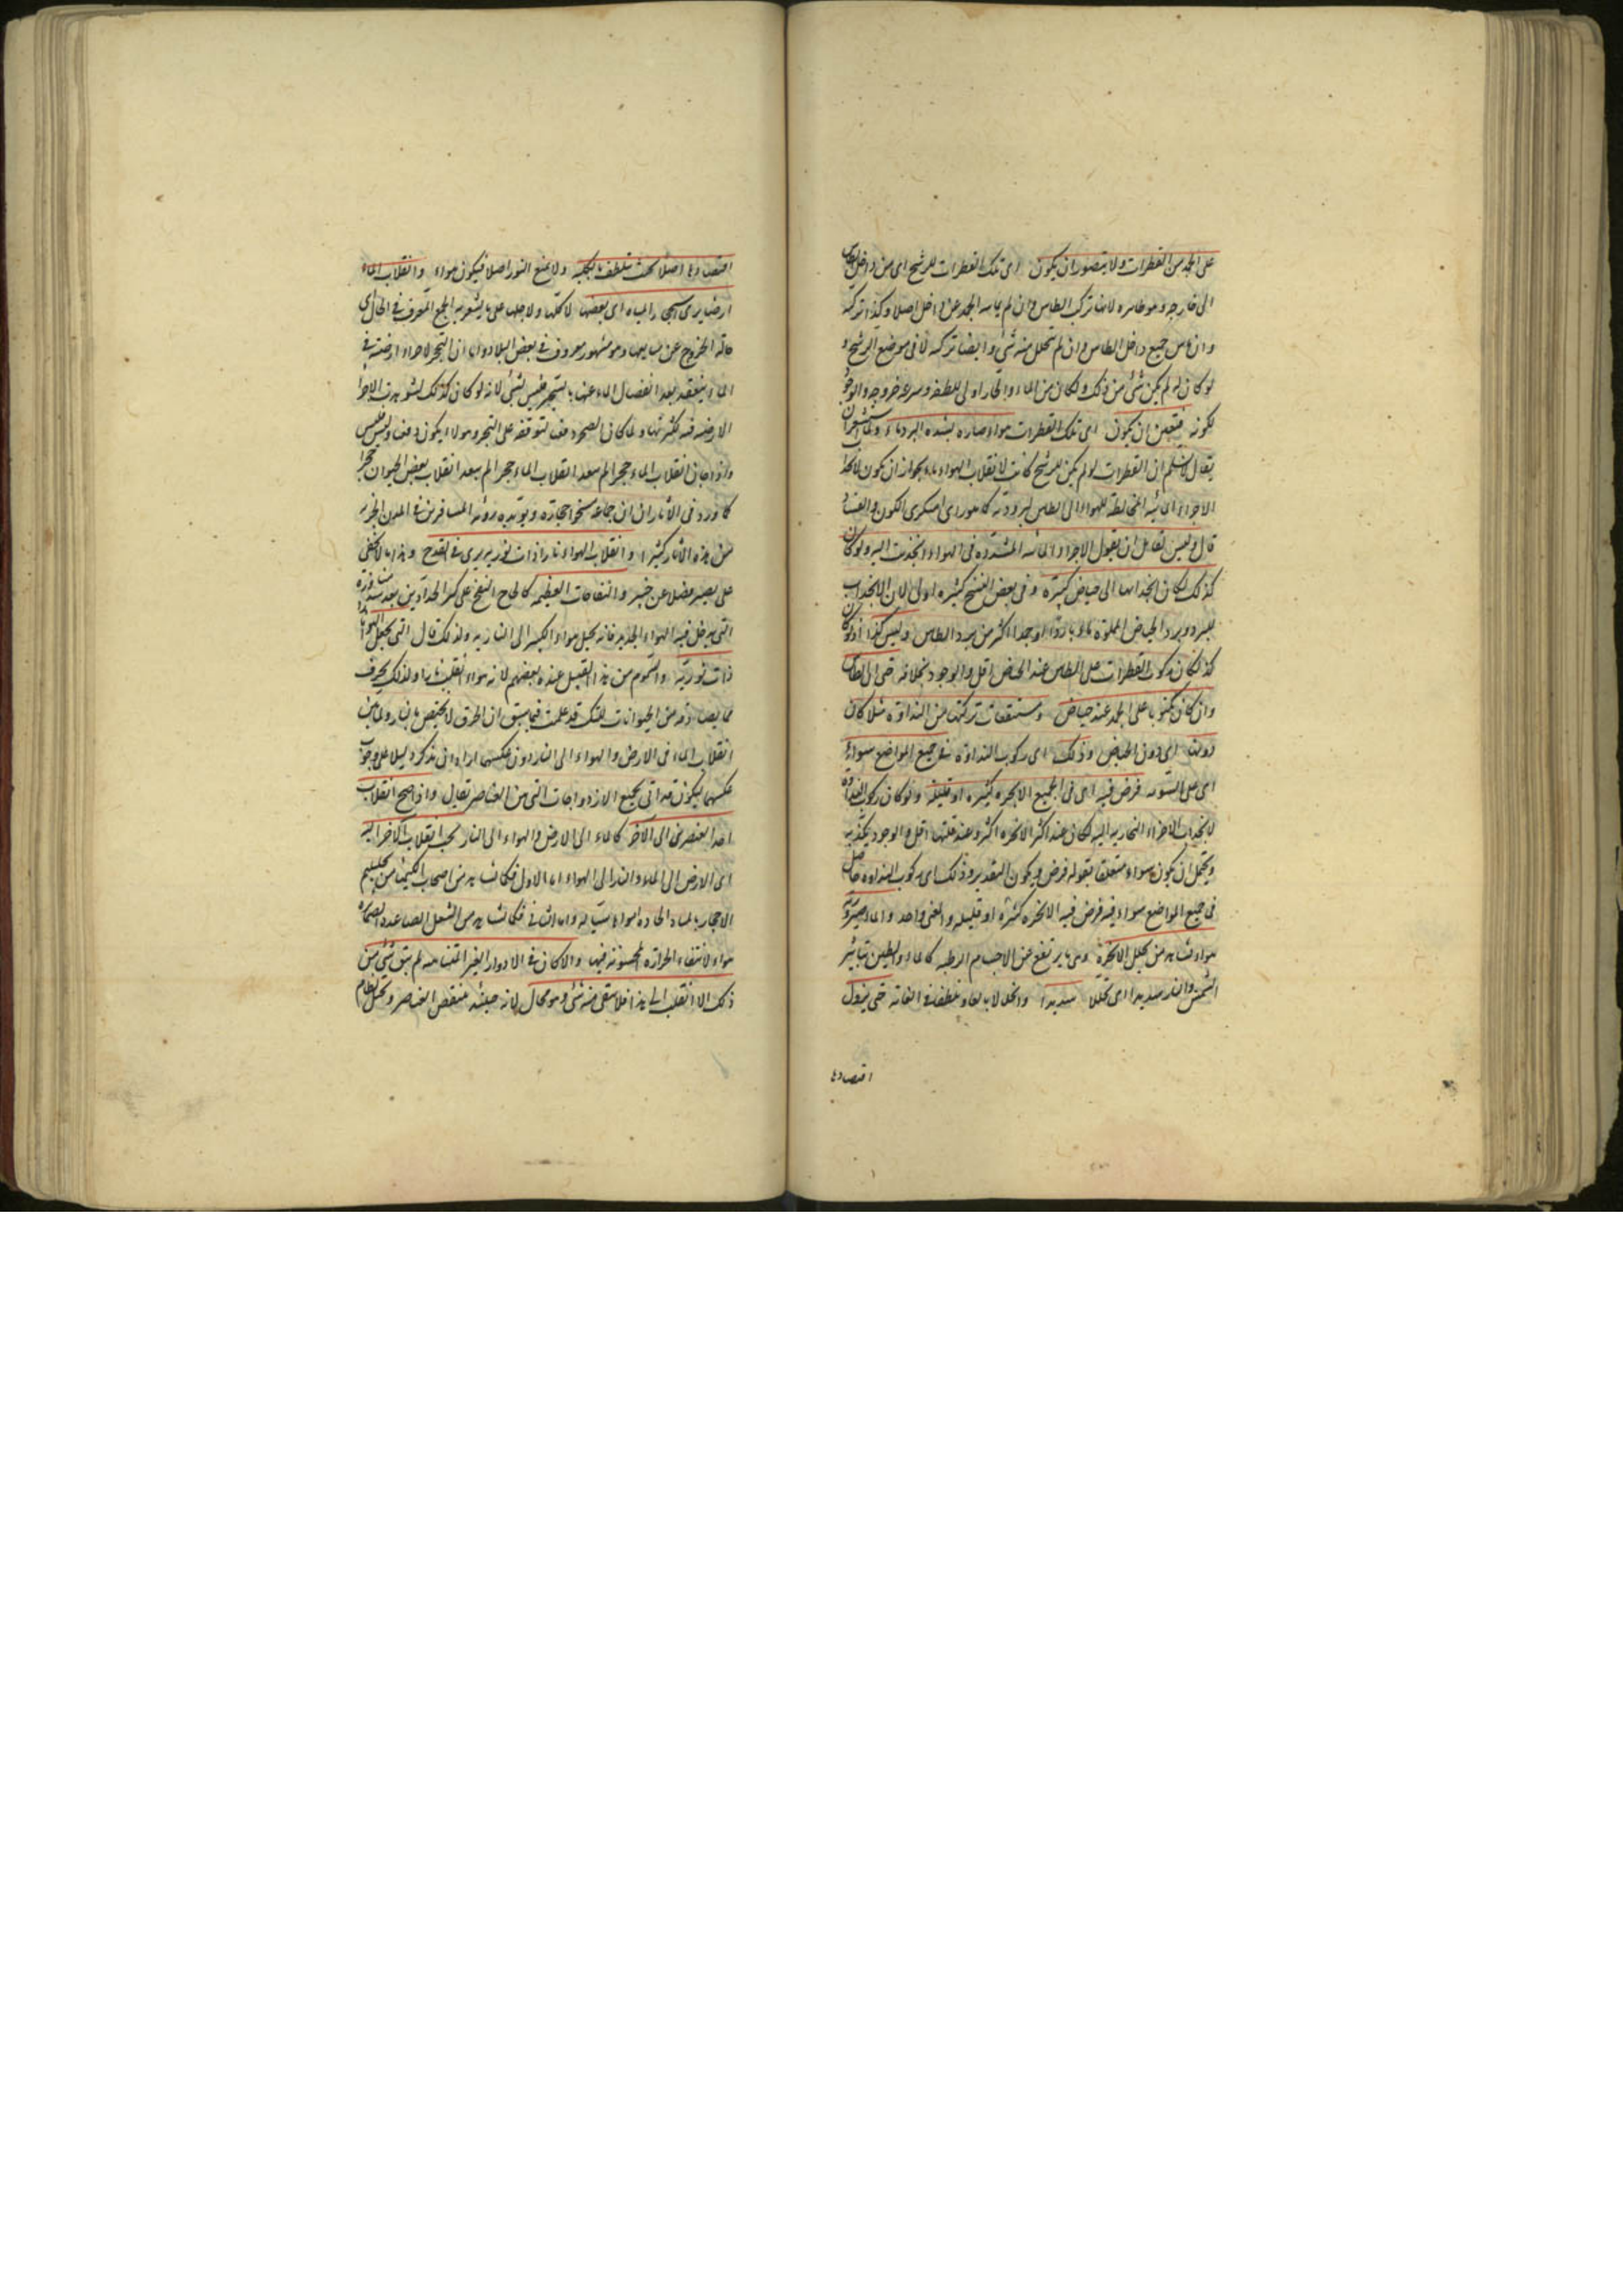 على الجمد من القطرات ولا يتصور ان يكون اى تلك القطرات للرشح اى من داخل الطاس
الى خارجه وهو ظاهره لانها تركب الطاس وان لم يماسه الجمد عن داخل اصلا وكذا تركبه
وان ماس جميع داخل الطاس وان لم يتحلل منه شئ وايضا تركبه لا فى موضع الرشح و
لو كان له لم يكن شئ من ذلك ولكان من الماء والحار اولى للطفه وسرعة خروجه والوجود
يكونه فتعين ان يكون اى تلك القطرات هواء صار ماء لشدة البرد ولما استشعر ان
يقال لا نسلم ان القطرات لو لم يكن للرشح كانت لانقلاب الهواء ماء بجواز ان يكون لانجذاب
الاجزاء المائية المختلطة للهواء الى الطاس لبرودته كما هو راى منكرى الكون والفساد
قال وليس لقائل ان يقول الاجزاء المائية المتبددة فى الهواء انجذبت اليه ولو كان
كذلك لكان انجذابها الى حياض كبيرة وفى بعض النسخ كثيرة اولى لان الانجذاب
للبرد وبرد الحياض المملوة ماء باردا او جمدا اكثر من برد الطاس وليس كذا اذ لو كان
كذا لكان ركوب القطرات على الطاس عند الحياض اقل والوجود بخلافه حتى ان الطاس
وان كان مكبوبا على الجمد عند حياض ومستنقعات تركبها من النداوة مثل ما كان
دونها اى دون الحياض وذلك اى ركوب النداوة فى جميع المواضع سواء
اى على السوية فرض فيه اى فى الجميع الابخرة كثيرة او قليلة ولو كان ركوب النداوة
لانجذاب الاجزاء البخارية اليه لكان عند اكثر الابخرة اكثر وعند قلتها اقل والوجود يكذبه
ويحتمل ان يكون سواء متعلقا بقوله فرض ويكون التقدير وذلك اى ركوب النداوة حاصل
فى جميع المواضع سواء فيه فرض فيه الابخرة كثيرة او قليلة والمعنى واحد والماء صيرورته
هواء نشاهد من تحلل الابخرة وهى ما يرتفع من الاجسام الرطبة كالماء والطين بتاثير
الشمس والنار شديدا اى تحللا شديدا وانحلالا بالغا وتلطفا فى الغاية حتى يزول
اقتصادها
اقتصادها اصلا بحيث يتلطف بالكلية ولا يمنع النور اصلا فيكون هواء وانقلاب الماء
ارضا يرى من المياه اى بعضها لا كلها ولا جلها على ما يشعر به الجمع المعرف فى الحال اى
حالة الخروج عن منابعها وهو مشهور معروف فى بعض البلاد ان التحجر لاجزاء ارضية فى
الماء ينعقد بعد انفصال الماء عنها بالتبخر فليس بشئ لانه لو كان كذلك لشوهدت الاجزاء
الارضية فيه لكثرتها ولما كان الصحر دفعة لتوقفه على التبخر وهو لا يكون دفعة وليس فليس
واذا جاز انقلاب الماء حجرا لم يبعد انقلاب الماء حجرا لم يبعد انقلاب بعض الحيوان حجرا
كما ورد فى الاثار ان جماعة مسخوا حجارة ويؤيده رؤية المسافرين فى المدن الخربة
من هذه الاثار كثيرا وانقلاب الهواء نارا ذات نورية يرى فى القدح وهذا مما لا يخفى
على بصير فضلا عن خبير والنفاخات العظيمة كالحاح النفخ على كير الحدادين بعد سد منافذه
التى يدخل فيه الهواء الجديد فانه يحيل هواء الكير الى النارية ولذلك قال التى تجعل الهواء نارا
ذات نورية والسموم من هذا القبيل عنده بعضهم لانه هواء انقلب نارا ولذلك يحرق
ما يصادفه من الحيوانات لكنك قد علمت فيما سبق ان الحرق لا يختص بالنار ولما بين
انقلاب الماء فى الارض والهواء الى النار دون عكسهما اراد ان يذكر دليلا على وجوب
عكسهما ليكون قد اتى بجميع الازدواجات التى من العناصر فقال واذا صح انقلاب
احد العنصرين الى الآخر كالماء الى الارض والهواء الى النار يجب انقلاب الآخر اليه
اى الارض الى الماء والنار الى الهواء اما الاول فكما نشاهد من اصحاب الكيمياء من تحليلهم
الاحجار بالمياه الحادة مياها سيالة واما الثانى فكما نشاهد من الشعل الصاعدة لصيرورتها
هواء لانتفاء الحرارة المحسوسة فيها والا كان فى الادوار الغير المتناهية لم يبق شئ من
ذلك الا انقلب الى هذا فلا يبقى منه شئ وهو محال لانه حينئذ ينتقض العناصر ويختل نظام